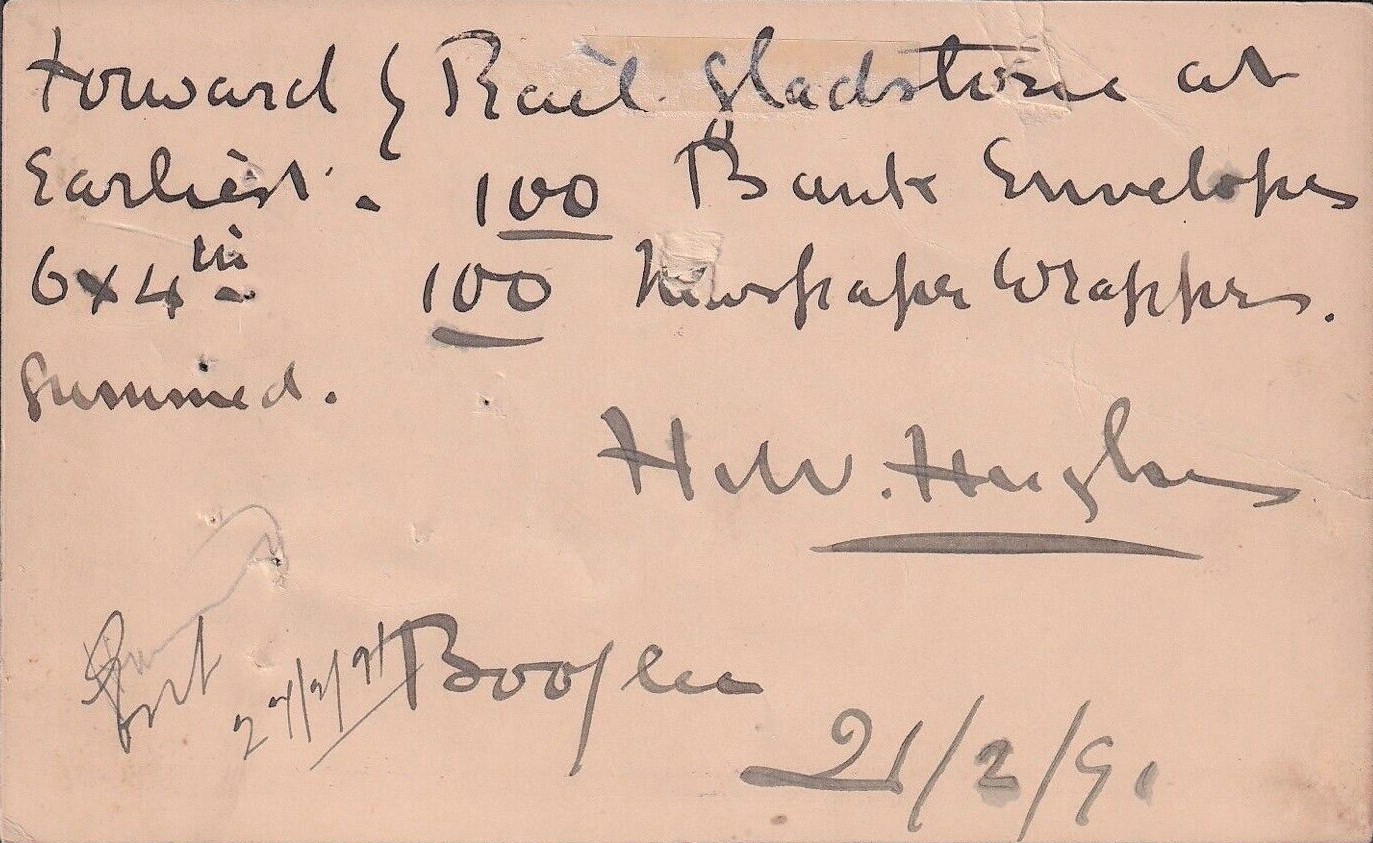 Forward by Rail Gladstone at
Earliest. 100 Bank Envelopes
6x4 in 100 Newspaper Wrappers.
Gummed.
H.W. Hughes
Booyleo
21/2/91
27/2/91